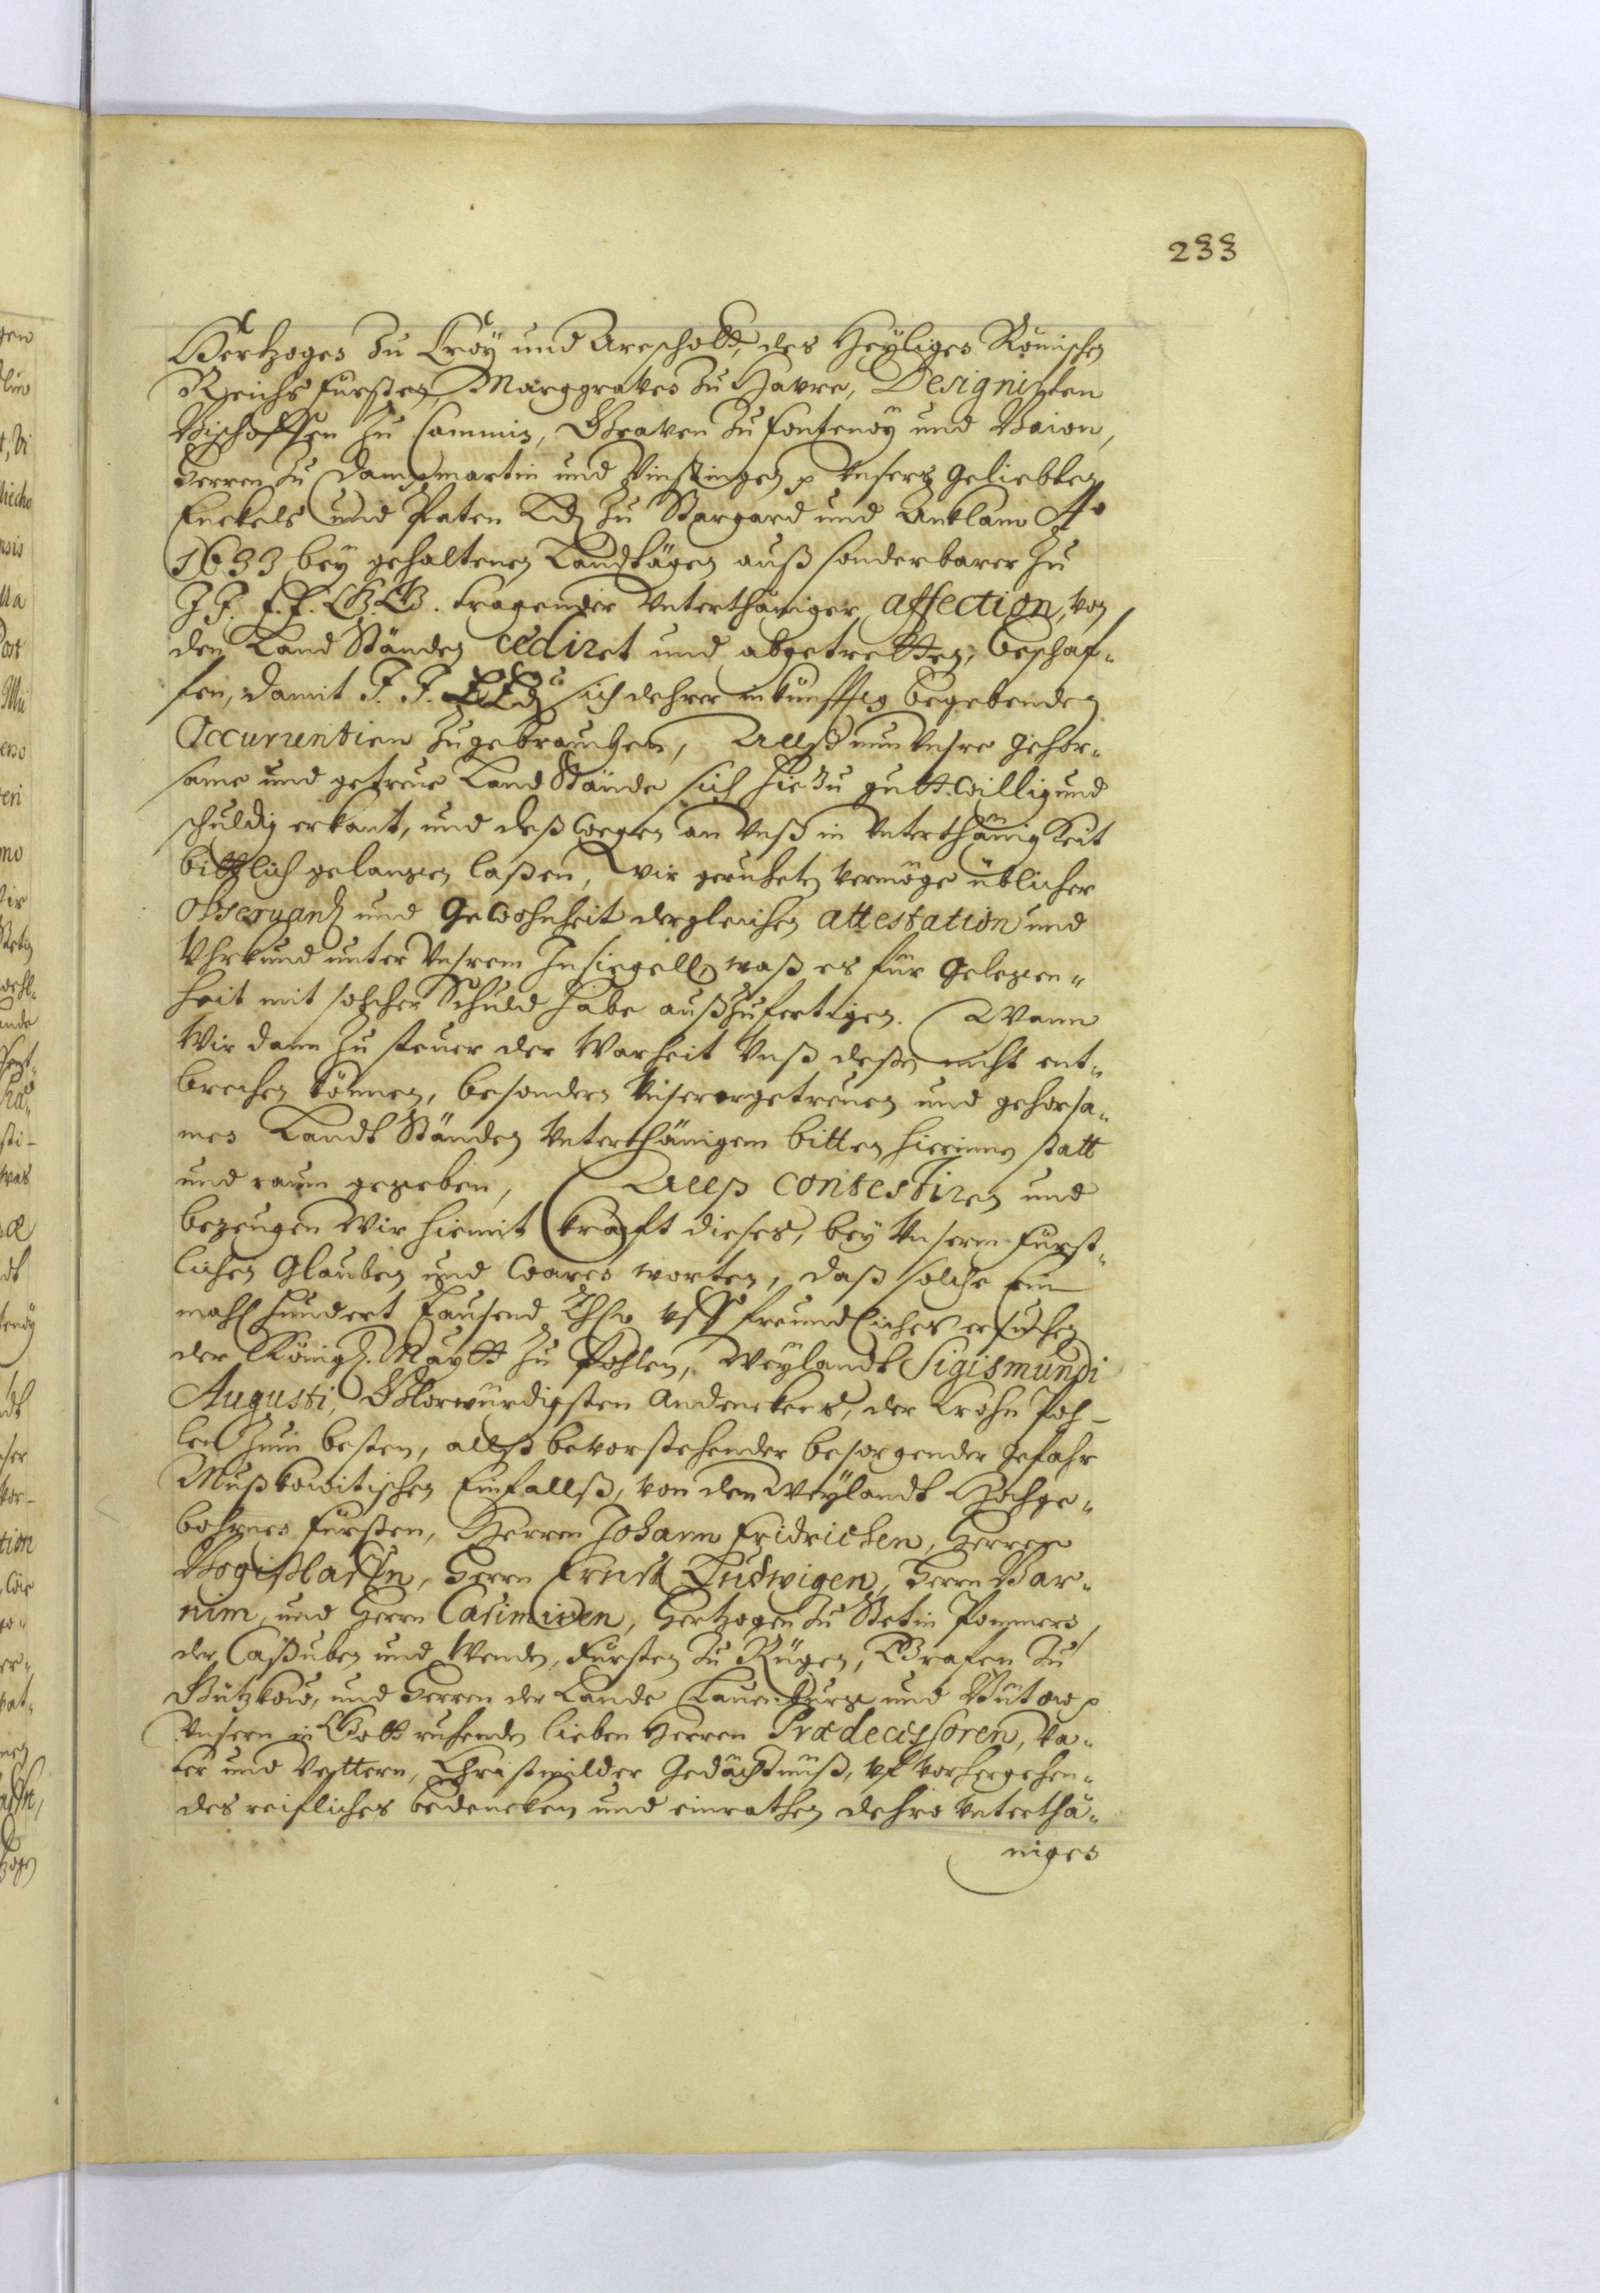 233
Hertzoges zu Croÿ und Areschott, des Heyligen Römischen
Reichs fursten, Marggraves zu Havre, Designirten
Bischoffen zu Cammin, Graven zu fontenoÿ und Baion,
Herren zu Dampmartin und Vinstingen p Unsers geliebten
Enckels und Paten Ld. zu Stargard und Anklam Ao
1633 bey gehaltenen Landtägen auß sonderbarer zu
J. F. E. E. G. G. tragender Unterthäniger affection, von
den Land Ständen cediret und abgetretten, beschaf-
fen, damit F. F. sich dehrer inkünfftig begebenden
Occurrentien zugebrauchen, Allß nun Unsre gehor-
same und getreue Land Stände sich hiezu guttwillig und
schuldig erkant, und deßwegen an Unß in Unterthänigkeit
bittlich gelangen laßen, wir geruheten vermöge üblicher
Observantz und Gewohnheit dergleichen attestation und
Uhrkund unter Unsrem Insiegell, waß es für gelegen-
heit mit solcher Schuld habe außzufertigen. Wann
Wir dann zu steuer der Warheit Unß deßen nicht ent-
brechen können, besondern Unserer getreuen und gehorsa-
men Landt Ständen Unterthänigem bitten hierinne statt
und raum gegeben, Allß contestiren und
bezeugen Wir hiemit krafft dieses, bey Unserm fürst-
lichen Glauben und waren worten, daß solche Ein
mahl hundert tausend Thlr. uff freundliches ersuchen
der Königl. Maytt zu Pohlen, Weylandt Sigismundi
Augusti, Glorwürdigsten Andenckens, der Krohn Poh-
len zum besten, allß bevorstehender besorgender gefahr
Mußkowitischen Einfallß, von den Weylandt Hochge-
bohrnen fürsten, Herren Johann Fridrichen, Herren
Bogißlaffn, Herrn Ernst Ludwigen, Herrn Bar-
nim, und Herrn Casimiren, Hertzogen zu Stetin Pommern,
der Caßuben und Wenden, Fursten zu Rügen, Grafen zu
Gützkow, und Herren der Lande Lauenburg und Bütow p
Unsern in Gott ruhenden lieben Herren Prædecessoren, Va-
ter und Vettern, Christmilder Gedächtnüß, uf vorhergehen-
des reifliches bedencken und einrathen dehro Unterthä-
niges